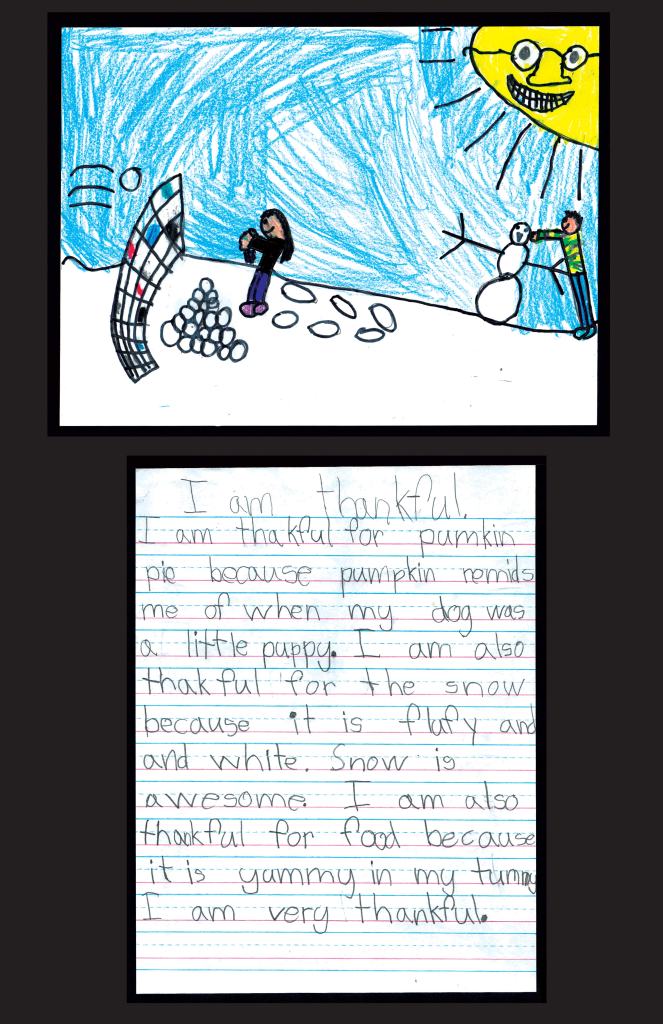 I am thankful.
I am thakful for pumkin
pie because pumpkin remids
me of when my dog was
a little puppy. I am also
thakful for the snow
because it is flufy and
and white. Snow is
awesome. I am also
thankful for food because
it is yummy in my tummy
I am very thankful.